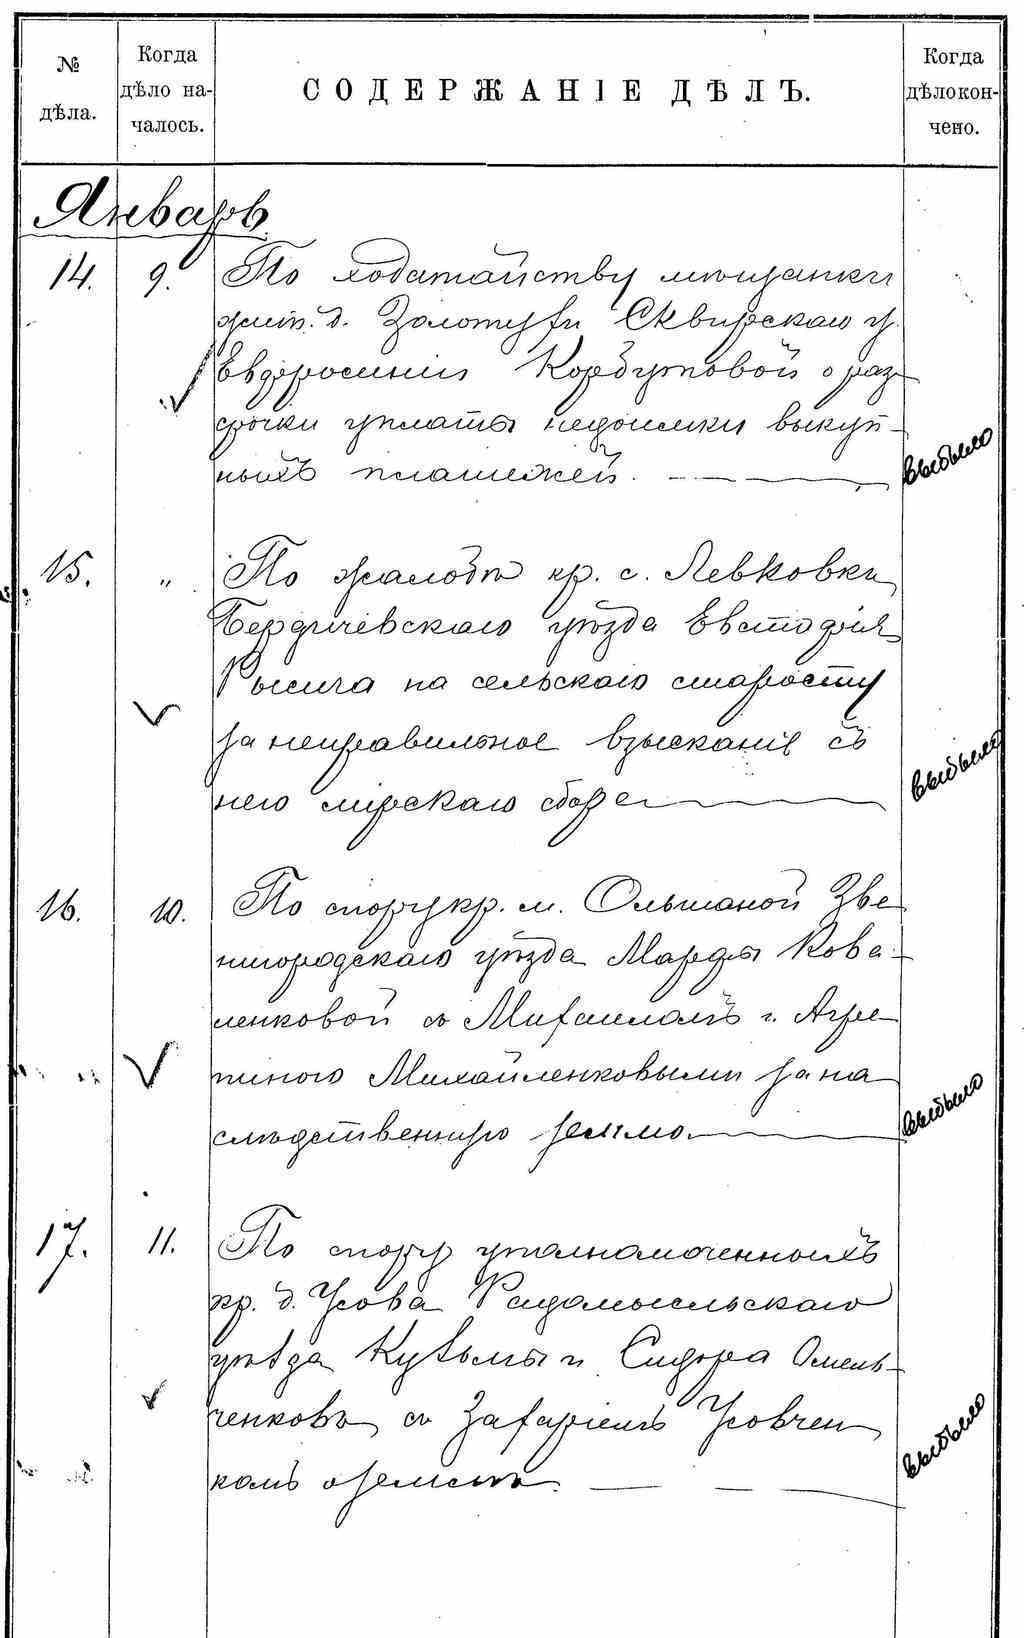 № дѣла.
Когда дѣло на-
чалось.
СОДЕРЖАНІЕ ДѢЛЪ.
Когда дѣло кон-
чено.
Январь
14. 9. По ходатайству мѣщанки
жит. д. Золотухи Сквирскаго у.
Евфросиніи Корбутовой о раз-
срочки уплаты недоимки выкуп-
ныхъ платежей. выбыло
15. „ По жалобѣ кр. с. Левковки
Бердичевскаго уѣзда Евстафія
на сельскаго старосту
за неправильное взысканіе съ
него мірскаго сбора выбыло
16. 10. По спору кр. м. Ольшаной Зве-
нигородскаго уѣзда Марфы Кова-
ленковой съ Михаиломъ и Агре-
пиною Михайленковыми за на
слѣдственную землю. выбыло
17. 11. По спору уполномоченныхъ
кр. д. Усова Радомысльскаго
уѣзда Кузьмы и Сидора Омель-
ченковъ съ Захаріемъ Усовчен
комъ о землѣ. выбыло